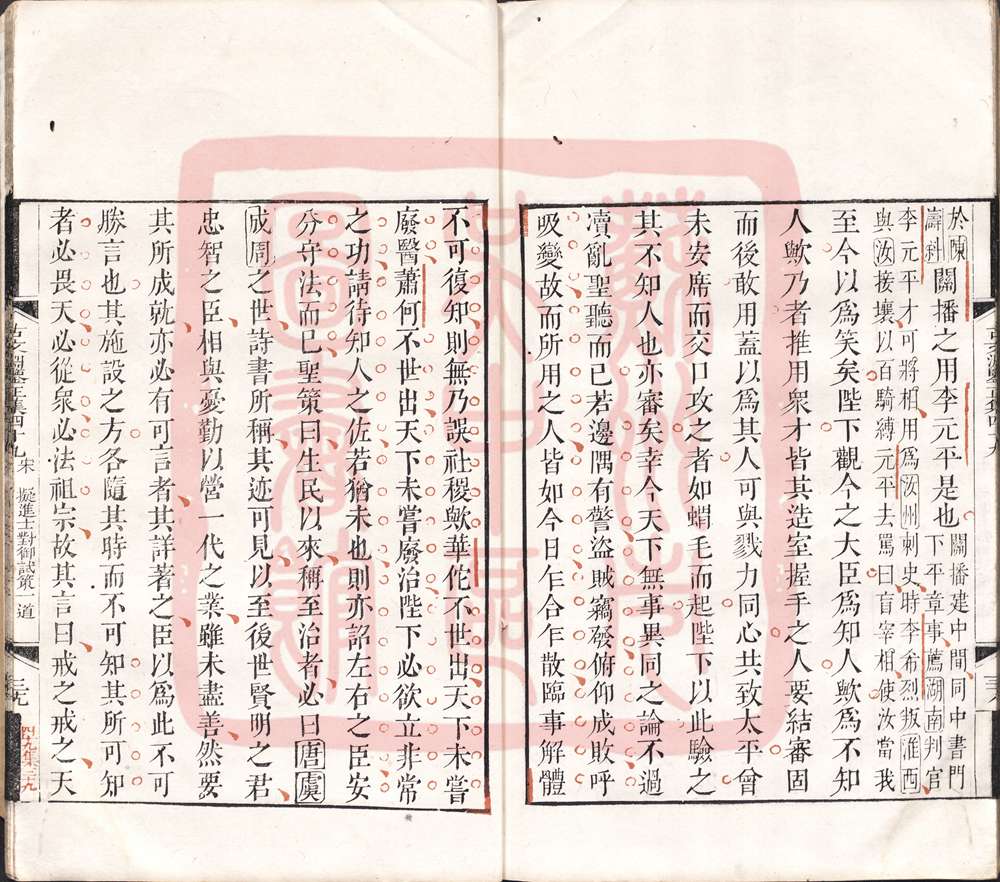 於陳
濤斜
關播之用李元平是也
關播建中間同中書門
下平章事薦湖南判官
李元平才可將相用爲汝州刺史時李希烈叛淮西
與汝接壤以百騎縛元平去罵曰盲宰相使汝當我
至今以爲笑矣陛下觀今之大臣爲知人歟爲不知
人歟乃者推用衆才皆其造室握手之人要結審固
而後敢用蓋以爲其人可與戮力同心共致太平曾
未安席而交口攻之者如蝟毛而起陛下以此驗之
其不知人也亦審矣幸今天下無事異同之論不過
瀆亂聖聽而已若邊隅有警盜賊竊發俯仰成敗呼
吸變故而所用之人皆如今日乍合乍散臨事解體
不可復知則無乃誤社稷歟華佗不世出天下未嘗
廢醫蕭何不世出天下未嘗廢治陛下必欲立非常
之功請待知人之佐若猶未也則亦詔左右之臣安
分守法而已聖策曰生民以來稱至治者必曰唐虞
成周之世詩書所稱其迹可見以至後世賢明之君
忠智之臣相與憂勤以營一代之業雖未盡善然要
其所成就亦必有可言者其詳著之臣以爲此不可
勝言也其施設之方各隨其時而不可知其所可知
者必畏天必從衆必法祖宗故其言曰戒之戒之天
古文淵鑒正集四十九 宋 擬進士對御試策一道 三九
四九集三九